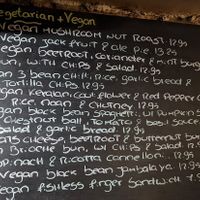 egetarian + Vegan
VEGAN MUSHROOM NUT ROAST. 12.95
vegan Jack fruit & ale Pie 13.95
vegan BEETROOT, coriander & mint burg
Bun, with CHIPS & Salad. 12.95
an 3 bean chilli, Rice, garlic bread &
tortilla CHIPS 12.95
egan Keralan cauliflower & Red Pepper C
Rice, naan & CHUTNEY. 12.95
egan black bean spaghetti, w/ PUMPKIN S
CHESTNUT ball, TOMATO & basil Sauce
Salad & garlic bread. 12.95
OATS CHEESE, beetroot & butternut bur
Brioche bun, w/ CHIPS & Salad. 12.95
Spinach & Ricotta Cannelloni. 12.95
Vegan black bean Jambalaya. 12.95
egan FISHLESS finger Sandwich 7.9